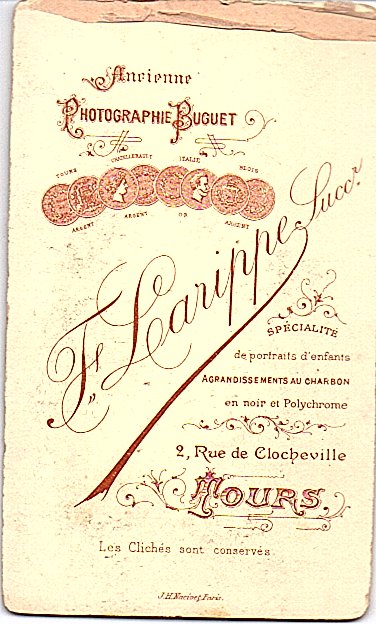 Ancienne
PHOTOGRAPHIE BUGUET
TOURS CHATELLERAULT ITALIE BLOIS
ARGENT ARGENT OR ARGENT
Ft. Larippe Succr.
SPÉCIALITÉ
de portraits d'enfants
AGRANDISSEMENTS AU CHARBON
en noir et Polychrome
2, Rue de Clocheville
TOURS
Les Clichés sont conservés
J.H. Paris.